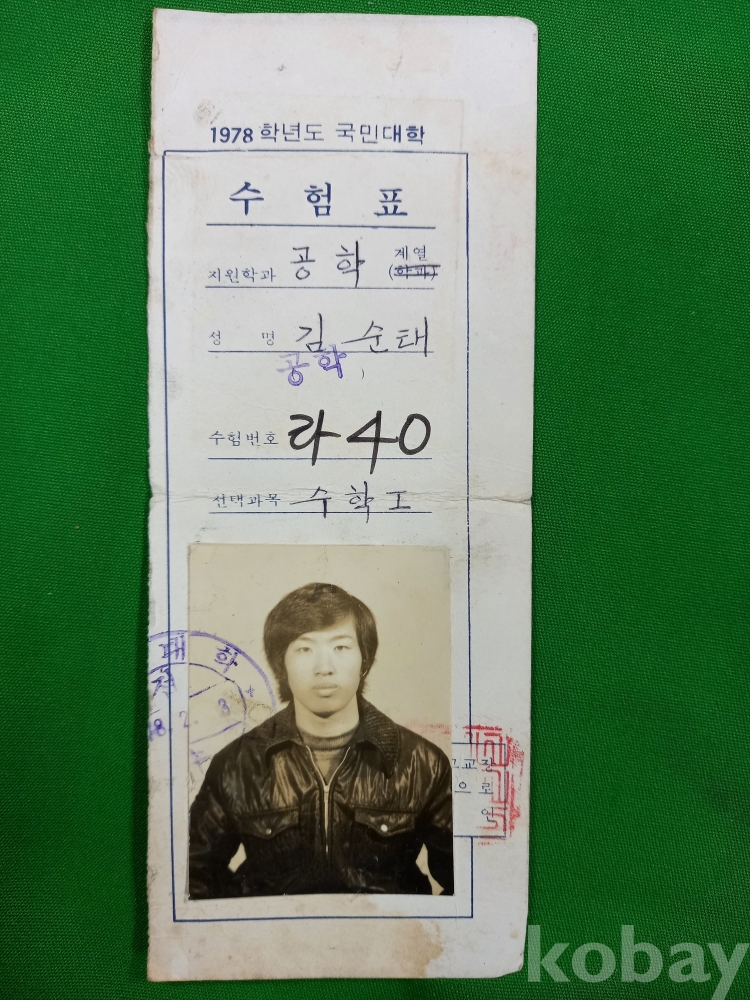 1978 학년도 국민대학
수 험 표
계열
지원학과 공학 (학과)
성 명 김순태
공학 )
수험번호 라 40
선택과목 수학 I
대 학
8. 2. 3
고교장
으로
인
kobay